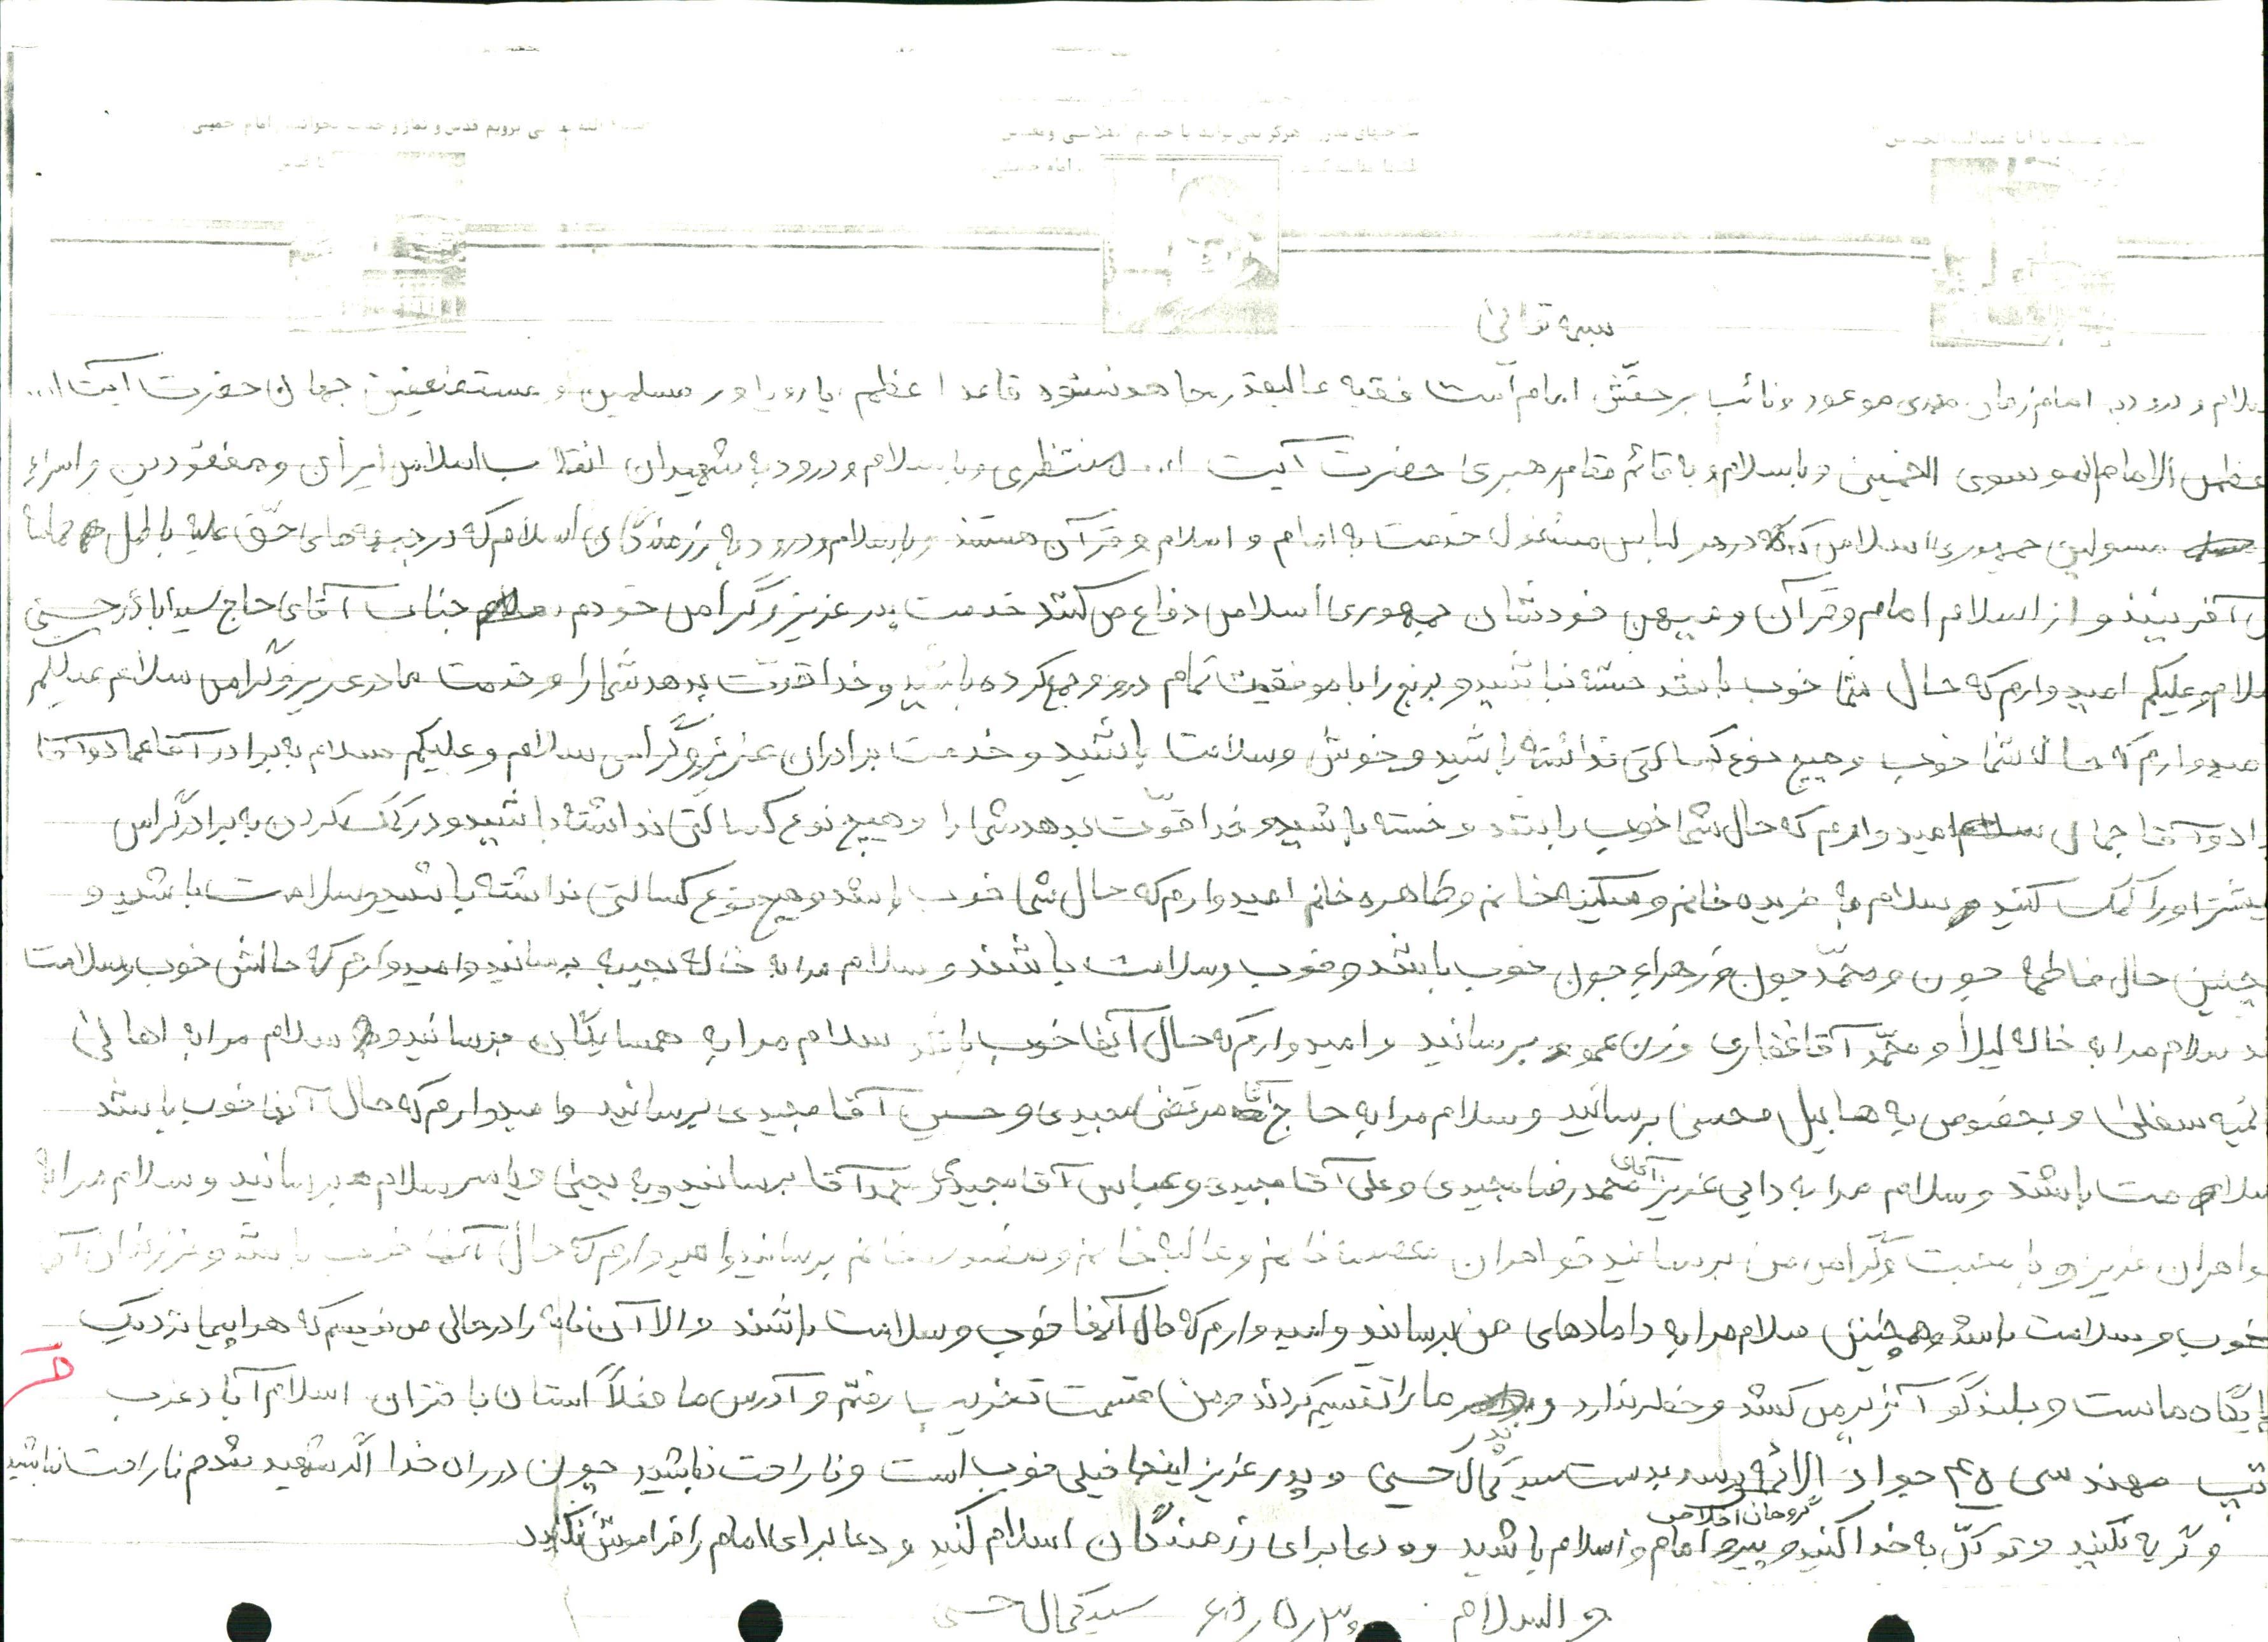 بسمه تعالی
سلام و درود به امام زمان مهدی موعود و نائب برحقّش امام امت فقیه عالیقدر مجاهد نستوه قاعد اعظم یار و یاور مسلمین و مستضعفین جهان حضرت آیت ا...
عظمی الامام الموسوی الخمینی و با سلام و به قائم مقام رهبری حضرت آیت ا... منتظری و با سلام و درود به شهیدان انقلاب اسلامی ایران و مفقودین و اسراء
مسولین جمهوری اسلامی که در هر لباس مشغول خدمت به امام و اسلام و قرآن هستند و با سلام و درود به رزمندگان اسلام که در جبهه های حقّ علیه باطل حماسه
می آفرینند و از اسلام امام و قرآن و میهن خودشان جمهوری اسلامی دفاع می کنند خدمت پدر عزیز و گرامی خودم جناب آقای حاج سید اباذر حسنی
سلام و علیکم امیدوارم که حال شما خوب باشد خسته نباشید و برنج را با موفقیت تمام درو و جمع کرده باشید و خدا قدرت بدهد شما را و خدمت مادر عزیز و گرامی سلام علیکم
امیدوارم که حاله شما خوب و هیچ نوع کسالتی نداشته باشید و خوش و سلامت باشید و خدمت برادران عزیز و گرامی سلام و علیکم سلام به برادر آقا عماد و آقا
و آقا جمال امیدوارم که حال شما خوب باشد و خسته باشید و خدا قوّت بدهد شما را و هیچ نوع کسالتی نداشته باشید و در کمک کردن به برادر گرامی
بیشتر او را کمک کنید و سلام به فریده خانم و سکینه خانم و طاهره خانم امیدوارم که حال شما خوب باشد و هیچ نوع کسالتی نداشته باشید و سلامت باشید و
همچنین حال فاطمه جون و محمّد جون و زهراء جون خوب باشد و خوب و سلامت باشند و سلام مرا به خاله نجیبه برسانید و امیدوارم که حالش خوب و سلامت
سلام مرا به خاله لیلا و محمّد آقا غفاری و زن عمو برسانید و امیدوارم که حال آنها خوب باشد سلام مرا به همسایگان برسانید و سلام مرا به اهالی
سفلی و بخصوص به هابیل محسنی برسانید و سلام مرا به حاج آقا مرتضی مجیدی و حسین آقا مجیدی برسانید و امیدوارم که حال آنها خوب باشد
سلامت باشند و سلام مرا به دایی عزیز آقای محمد رضا مجیدی و علی آقا مجیدی و عباس آقا مجیدی محمد آقا برسانید و به یحیی و یاسر سلام برسانید و سلام مرا به
خواهران عزیز و با محبت و گرامی من برسانید خواهران خانم و عالیه خانم و خانم برسانید و امیدوارم که حال آنها خوب باشد و فرزندان آنها
خوب و سلامت باشند و همچنین سلام مرا به دامادهای من برسانید و امیدوارم که حال آنها خوب و سلامت باشند و الا آن نامه را در حالی می نویسم که هواپیما نزدیک
پایگاه ماست و بلندگو آژیر می کشد و خطر ندارد و ما را تقسیم کردند و من قسمت تخریب رفتم و آدرس ما فعلاً استان باختران اسلام آباد غرب
تیپ مهندسی ۴۵ جواد الائمه برسد بدست سید کمال حسنی و پدر عزیز اینجا خیلی خوب است و ناراحت نباشید چون در راه خدا اگر شهید شدم ناراحت نباشید
گردهان اخلاص
و گریه نکنید و توکّل به خدا کنید و پیرو امام و اسلام باشید و دعا برای رزمندگان اسلام کنید و دعا برای امام را فراموش نکنید
والسلام
سید کمال حسنی